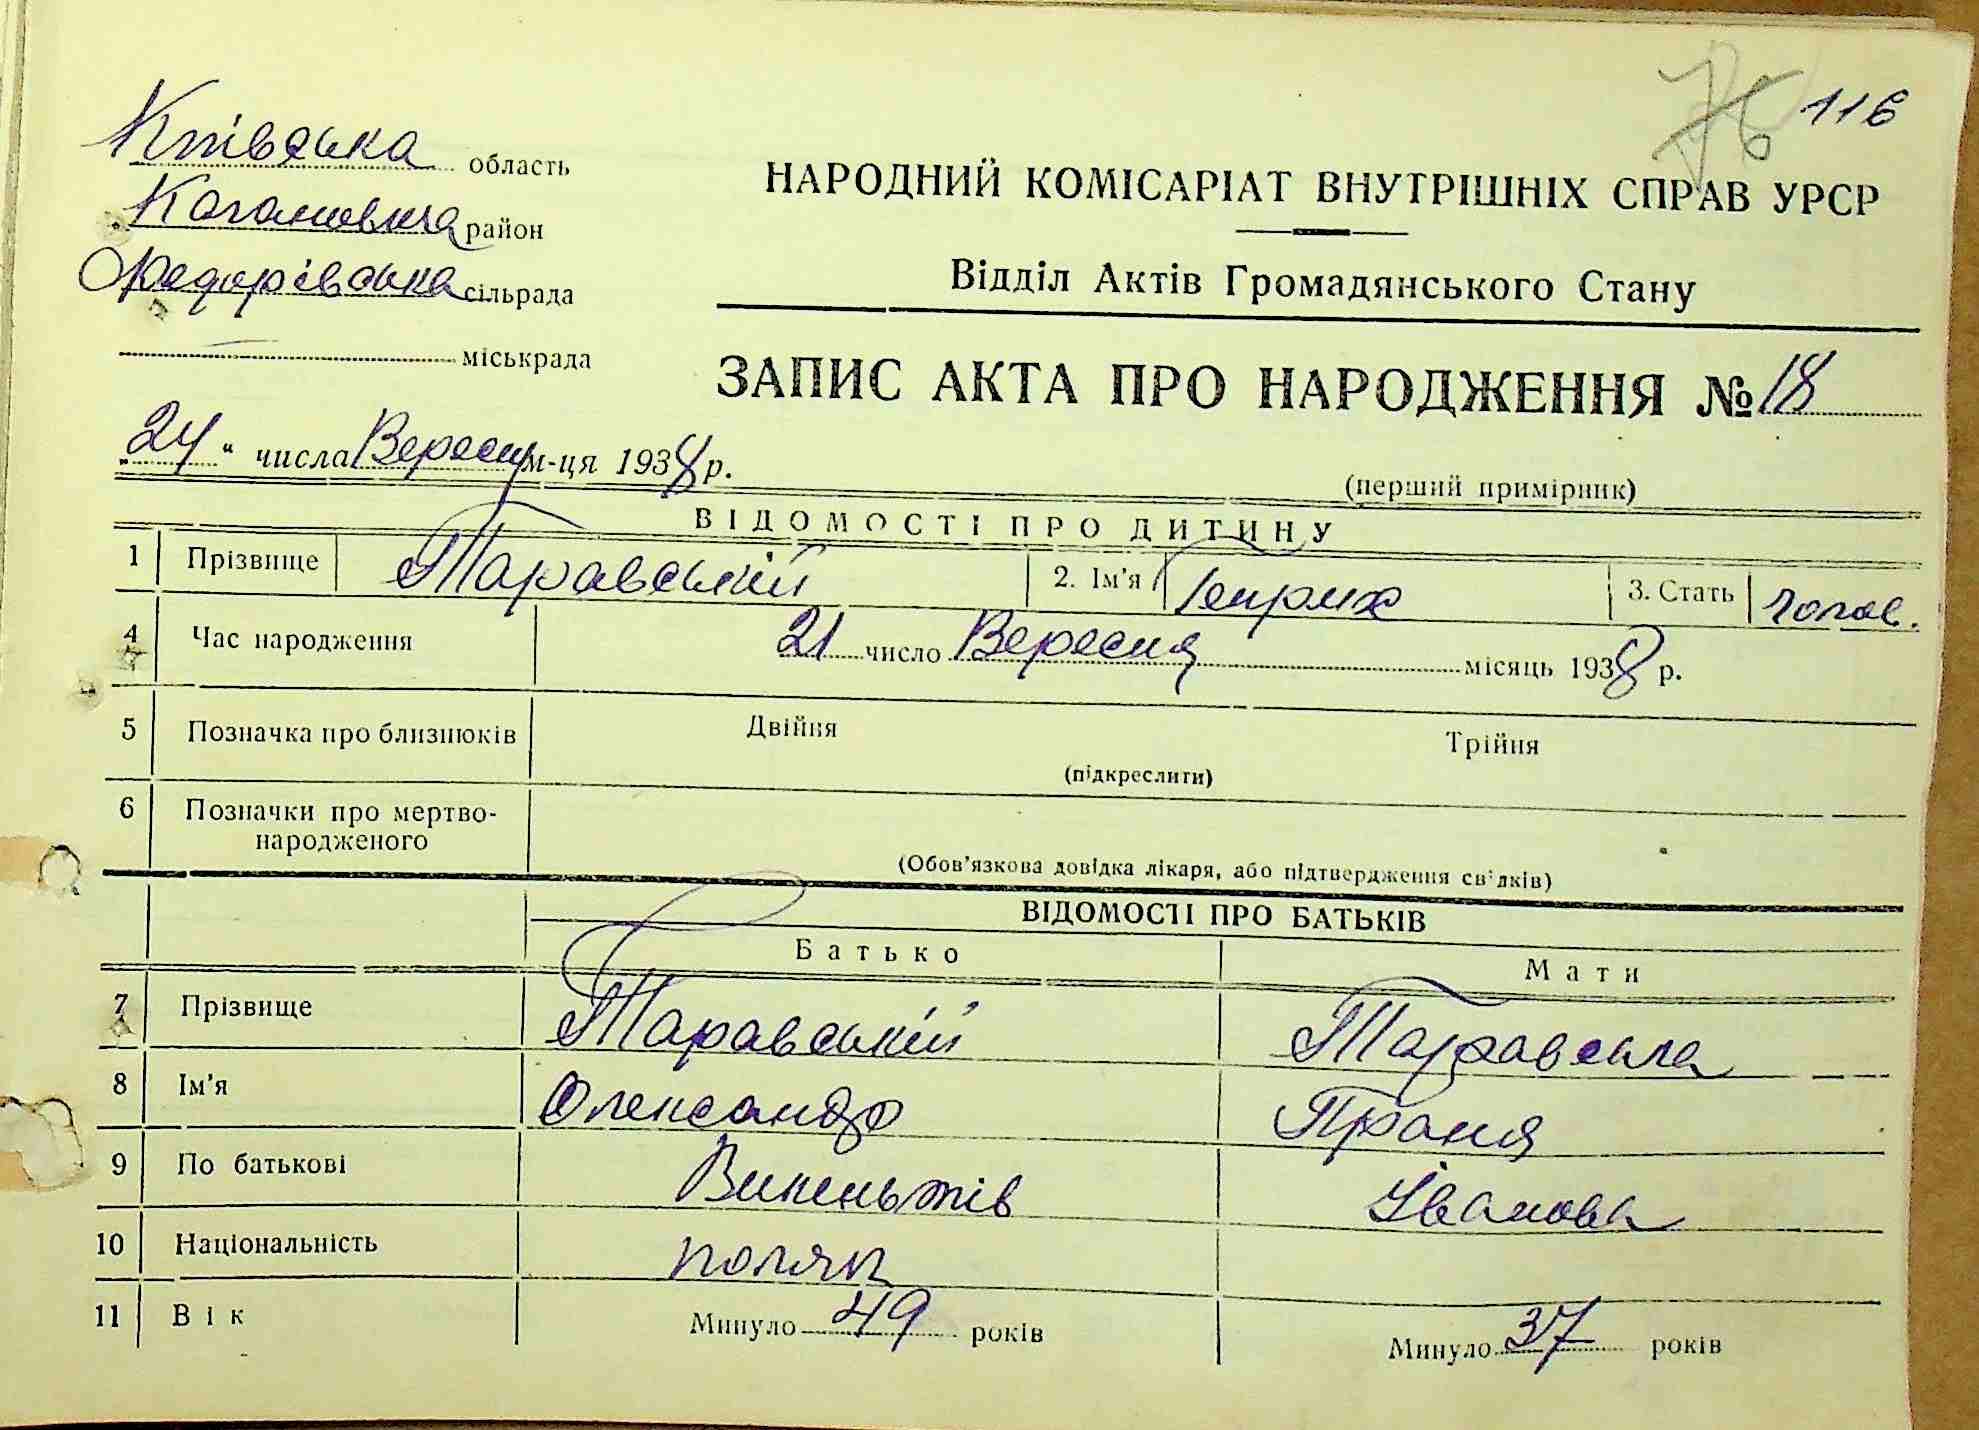 76 116
Київська область
Кагановича район
Федорівська сільрада
міськрада
НАРОДНИЙ КОМІСАРІАТ ВНУТРІШНІХ СПРАВ УРСР
Відділ Актів Громадянського Стану
ЗАПИС АКТА ПРО НАРОДЖЕННЯ № 18
„24“ числа Вересня м-ця 1938 р.
(перший примірник)
ВІДОМОСТІ ПРО ДИТИНУ
1 Прізвище Таравський 2. Ім'я Генрих 3. Стать чолов.
4 Час народження 21 число Вересня місяць 1938 р.
5 Позначка про близнюків Двійня Трійня
(підкреслити)
6 Позначки про мертво-
народженого
(Обов'язкова довідка лікаря, або підтвердження свідків)
ВІДОМОСТІ ПРО БАТЬКІВ
Батько Мати
7 Прізвище Таравський Таравська
8 Ім'я Олександр Праня
9 По батькові Викеньтів Іванова
10 Національність поляк
11 Вік Минуло 49 років Минуло 37 років